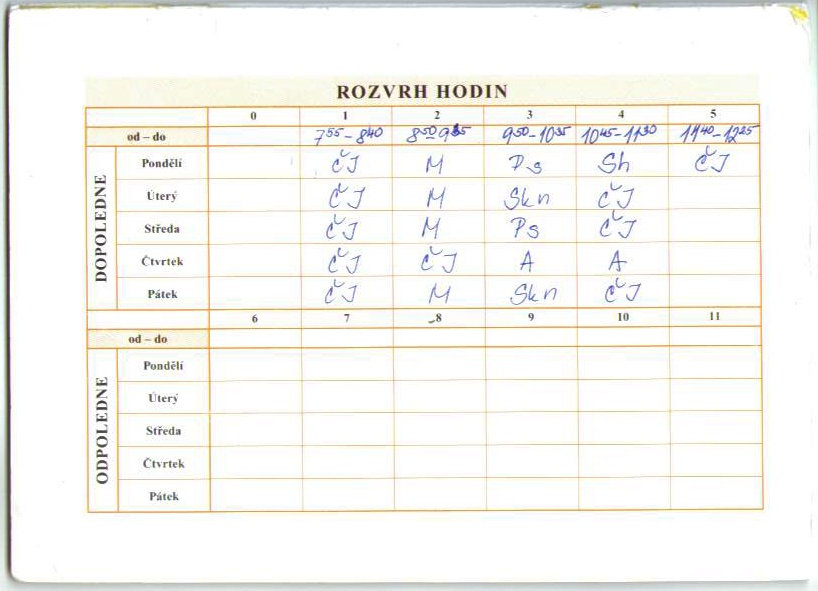 ROZVRH HODIN
0 1 2 3 4 5
od – do 7⁵⁵-8⁴⁰ 8⁵⁰-9³⁵ 9⁵⁰-10³⁵ 10⁴⁵-11³⁰ 11⁴⁰-12²⁵
DOPOLEDNE
Pondělí ČJ M Ps Sh ČJ
Úterý ČJ M Skn ČJ
Středa ČJ M Ps ČJ
Čtvrtek ČJ ČJ A A
Pátek ČJ M Skn ČJ
6 7 8 9 10 11
od – do
ODPOLEDNE
Pondělí
Úterý
Středa
Čtvrtek
Pátek